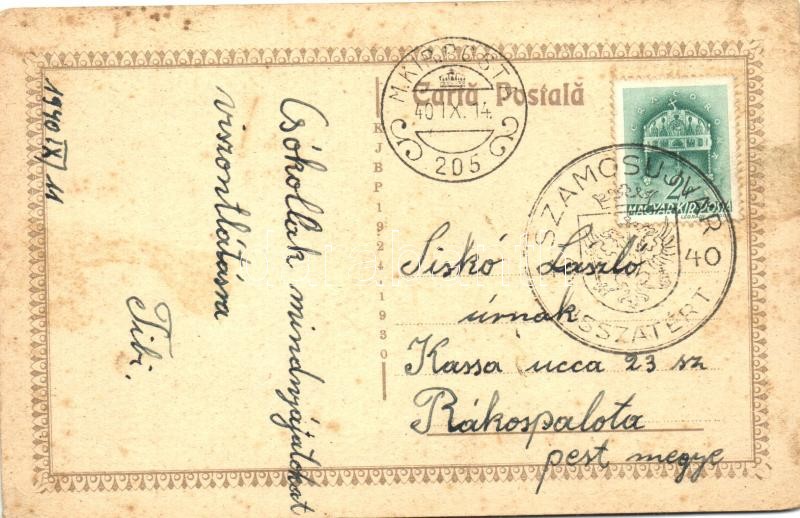 Cartă Postală
1940 IX/11
Csókollak mindnyájatokat
viszontlátásra
Tibi.
KJBP 1924-1930
M.KIR.POSTA
40 IX. 14
205
2
MAGYAR KIR. POSTA
SZAMOSUJVÁR
40
VISSZATÉRT
Siskó László
úrnak
Kassa ucca 23 sz
Rákospalota
pest megye